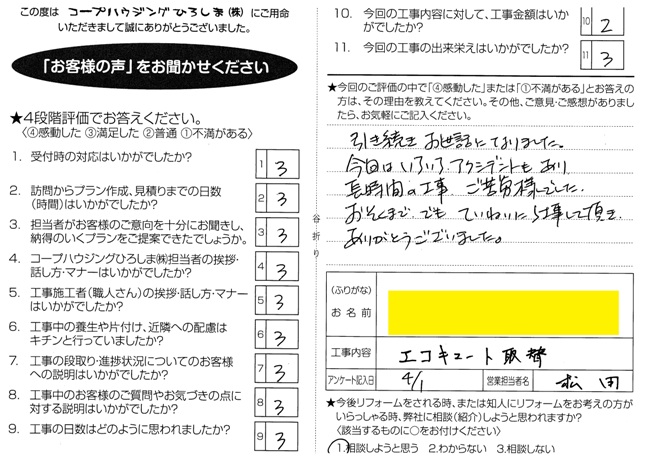 この度は コープハウジングひろしま(株) にご用命
いただきまして誠にありがとうございました。
「お客様の声」をお聞かせください
★4段階評価でお答えください。
〈④感動した ③満足した ②普通 ①不満がある〉
1. 受付時の対応はいかがでしたか?
1 3
2. 訪問からプラン作成、見積りまでの日数
(時間)はいかがでしたか?
2 3
3. 担当者がお客様のご意向を十分にお聞きし、
納得のいくプランをご提案できたでしょうか。
3 3
4. コープハウジングひろしま㈱担当者の挨拶・
話し方・マナーはいかがでしたか?
4 3
5. 工事施工者(職人さん)の挨拶・話し方・マナー
はいかがでしたか?
5 3
6. 工事中の養生や片付け、近隣への配慮は
キチンと行っていましたか?
6 3
7. 工事の段取り・進捗状況についてのお客様
への説明はいかがでしたか?
7 3
8. 工事中のお客様のご質問やお気づきの点に
対する説明はいかがでしたか?
8 3
9. 工事の日数はどのように思われましたか?
9 3
谷折り
10. 今回の工事内容に対して、工事金額はいか
がでしたか?
10 2
11. 今回の工事の出来栄えはいかがでしたか?
11 3
★今回のご評価の中で「④感動した」または「①不満がある」とお答えの
方は、その理由を教えてください。その他、ご意見・ご感想がありました
ら、お気軽にご記入ください。
引き続き お世話になりました。
今回は いろいろ アクシデントも あり
長時間の工事 ご苦労様でした。
おそくまででも ていねいに 工事して頂き
ありがとうございました。
(ふりがな)
お名前
工事内容 エコキュート取替
アンケート記入日 4/1 営業担当者名 松田
★今後リフォームをされる時、または知人にリフォームをお考えの方が
いらっしゃる時、弊社に相談(紹介)しようと思いますか?
〈該当するものに○をお付けください〉
1.相談しようと思う 2.わからない 3.相談しない